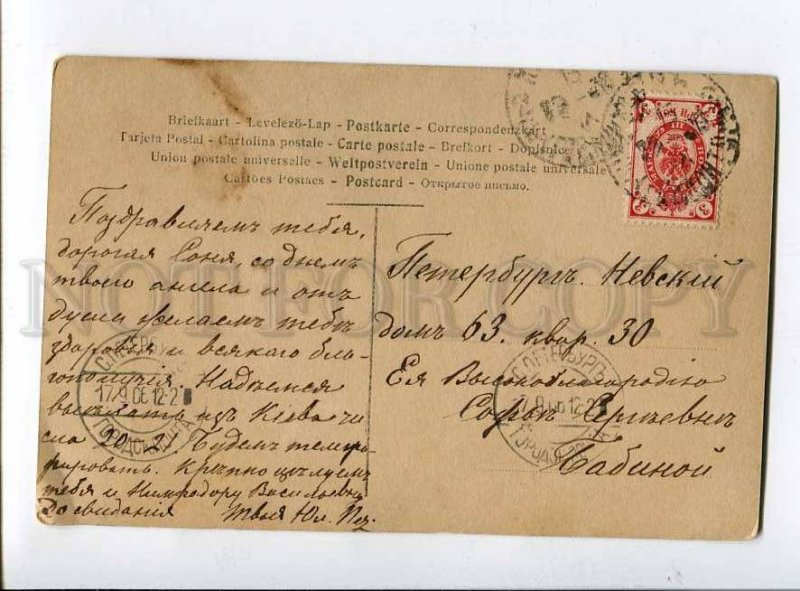 Briefkaart - Levelező-Lap - Postkarte - Correspondenzkart
Tarjeta Postal - Cartolina postale - Carte postale - Brefkort - Dopisnice
Union postale universelle - Weltpostverein - Unione postale universale
Cartões Postaes - Postcard - Открытое письмо.
Поздравляемъ тебя,
дорогая Соня, со днемъ
твоего ангела и отъ
души желаемъ тебѣ
здоровья и всякаго бла-
гополучія. Надѣемся
выѣхать изъ Кіева чи-
сла 20-21. Будемъ телегра-
фировать. Крѣпко цѣлуемъ
тебя и Васильевну
До свиданія Твоя Юл.
Петербургъ. Невскій
домъ 63. квар. 30
Ея Высокоблагородію
Софьѣ Сергѣевнѣ
Бабиной
С.ПЕТЕРБУРГЪ
17.9.06.12-2
3
3
NOT FOR COPY